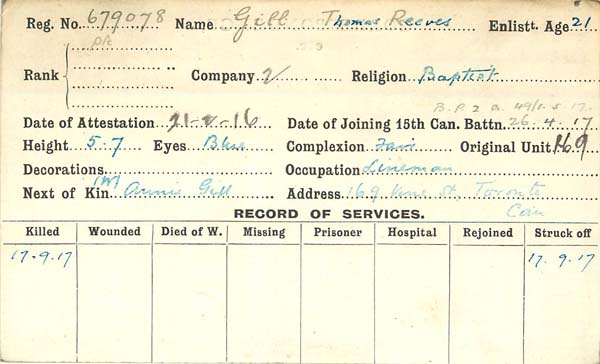 Reg. No. 679078 Name Gill Thomas Reeves Enlistt. Age 21
Rank Pte Company 2 Religion Baptist
B.P. 2 a. 49/1-5-17.
Date of Attestation 21-2-16 Date of Joining 15th Can. Battn. 26.4.17
Height 5-7 Eyes Blue Complexion Fair Original Unit 169
Decorations Occupation Lineman
Next of Kin (W) Annie Gill Address 169 St, Toronto
Can
RECORD OF SERVICES.
Killed Wounded Died of W. Missing Prisoner Hospital Rejoined Struck off
17.9.17 17.9.17